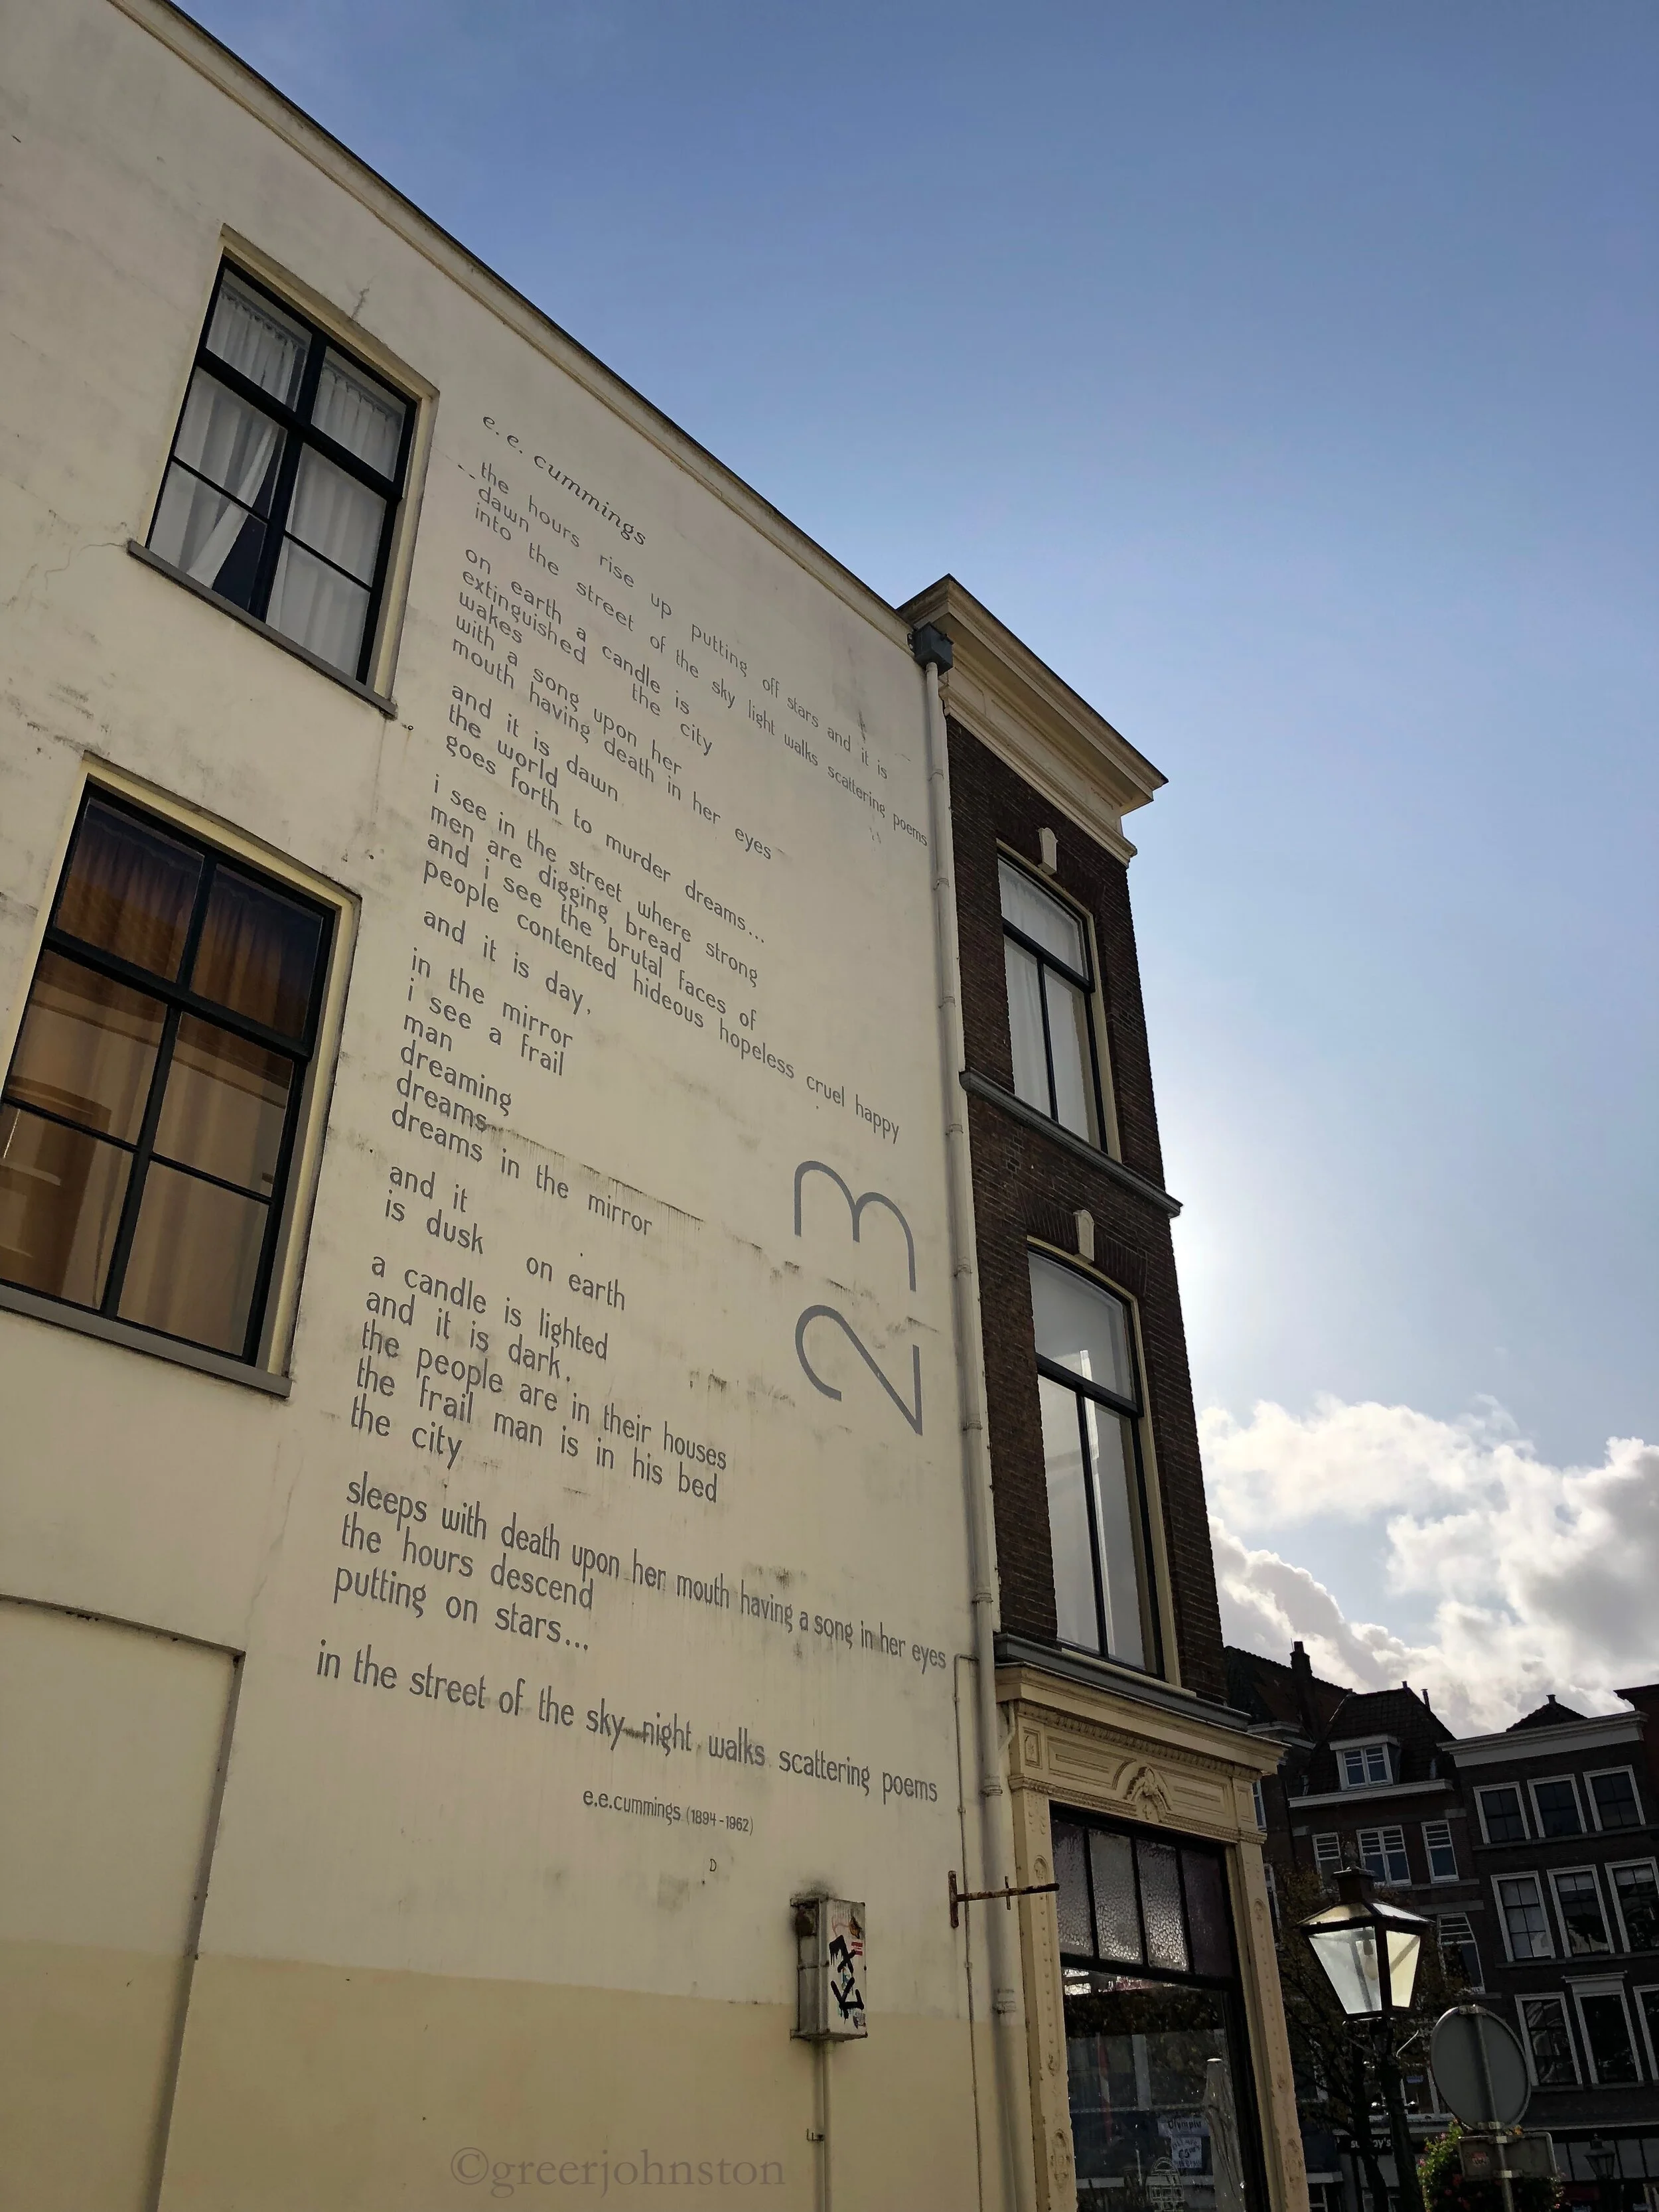 e.e. cummings
the hours rise up putting off stars and it is
dawn
into the street of the sky light walks scattering poems
on earth a candle is
extinguished the city
wakes
with a song upon her
mouth having death in her eyes
and it is dawn
the world
goes forth to murder dreams...
i see in the street where strong
men are digging bread
and i see the brutal faces of
people contented hideous hopeless cruel happy
and it is day,
in the mirror
i see a frail
man
dreaming
dreams
dreams in the mirror
and it
is dusk on earth
a candle is lighted
and it is dark.
the people are in their houses
the frail man is in his bed
the city
sleeps with death upon her mouth having a song in her eyes
the hours descend
putting on stars...
in the street of the sky night walks scattering poems
e.e.cummings (1894-1962)
D
23
Olympia
©greerjohnston